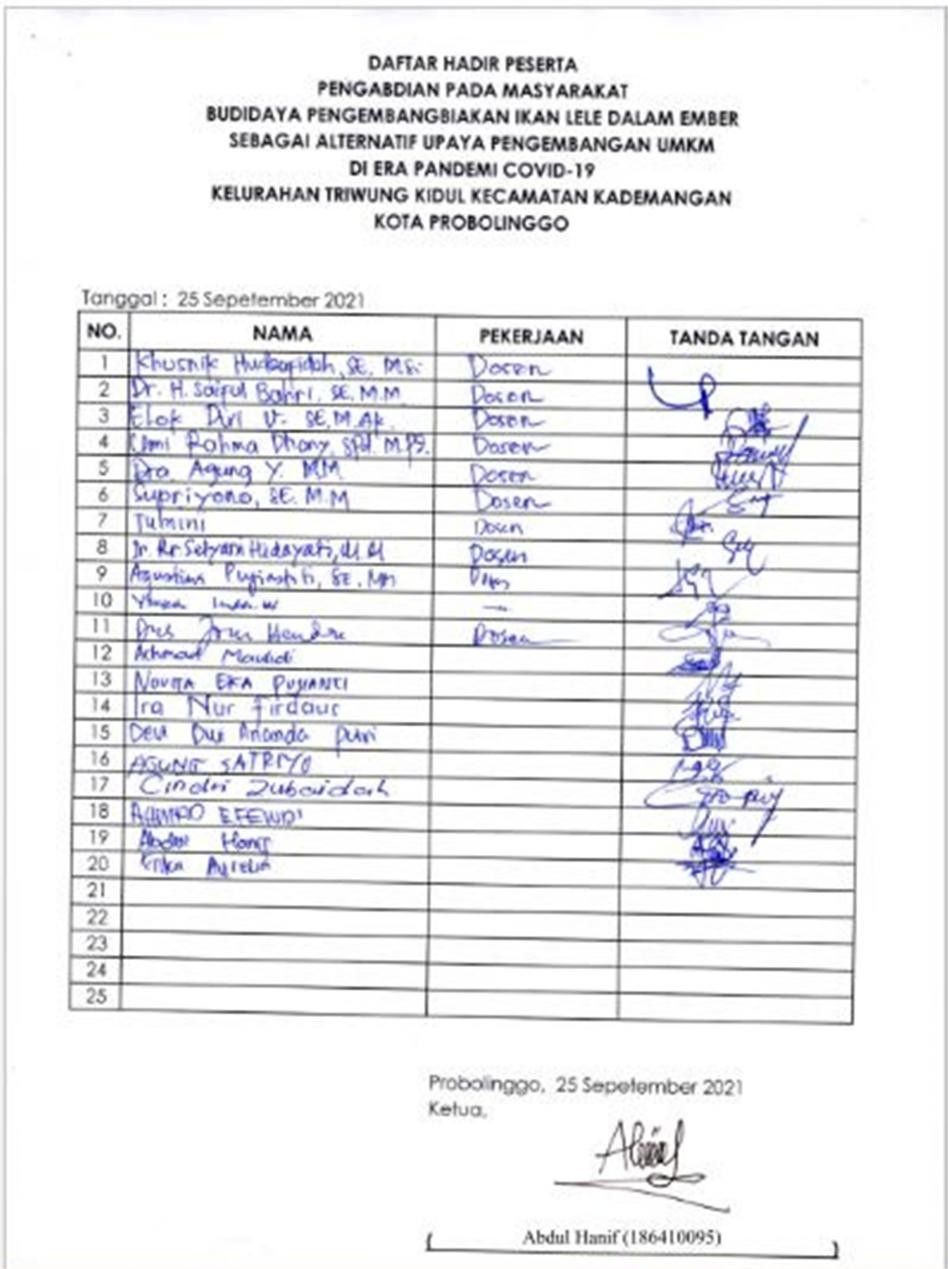 DAFTAR HADIR PESERTA
PENGABDIAN PADA MASYARAKAT
BUDIDAYA PENGEMBANGBIAKAN IKAN LELE DALAM EMBER
SEBAGAI ALTERNATIF UPAYA PENGEMBANGAN UMKM
DI ERA PANDEMI COVID-19
KELURAHAN TRIWUNG KIDUL KECAMATAN KADEMANGAN
KOTA PROBOLINGGO
Tanggal : 25 Sepetember 2021
NO. NAMA PEKERJAAN TANDA TANGAN
1 Khusnik Hudzafidah, SE, M.Si Dosen
2 Dr. H. Saiful Bahri, SE, M.M Dosen
3 Elok Dwi V. SE, M.Ak. Dosen
4 Umi Rahma Dhany, SPd. Dosen
5 Dra Agung Y. MM Dosen
6 Supriyono, SE. M.M Dosen
7 Tumini Dosen
8 Dr. RR Setyani Hidayati, Dosen
9 Agustina Pujiastuti, SE, MM
10
11 Hendra Dosen
12 Achmad Maulidi
13 NOVITA EKA PUJIANTI
14 Ira Nur Firdaus
15 Dewi Dwi Ananda putri
16 AGUNG SATRIYO
17 Cindri Zubaidah
18 ACHMAD EFENDI
19 Abdul Hanif
20 Aurelia
21
22
23
24
25
Probolinggo, 25 Sepetember 2021
Ketua,
Abdul Hanif (186410095)